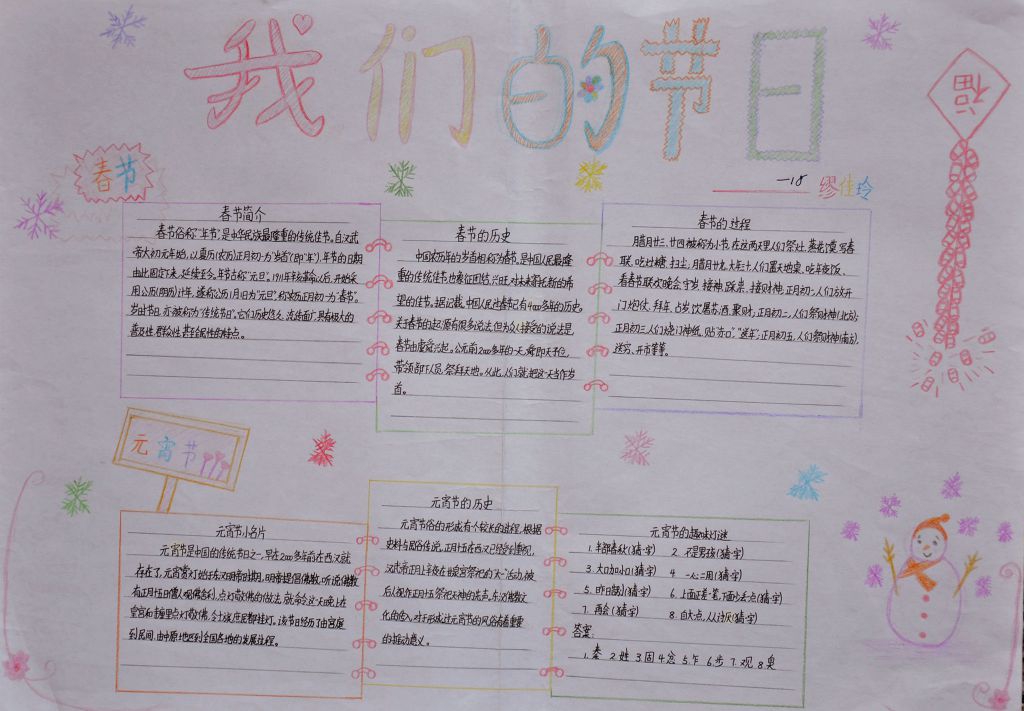 我们的节日
福
春节
一18 缪佳玲
春节简介
春节俗称"年节",是中华民族最隆重的传统佳节。自汉武
帝太初元年始,以夏历(农历)正月初一为"岁首"(即"年"),年节的日期
由此固定下来,延续至今。年节古称"元旦"。1911年辛亥革命以后,开始采
用公历(阳历)计年,遂称公历1月1日为"元旦",称农历正月初一为"春节"。
岁时节日,亦被称为"传统节日"。它们历史悠久、流传面广,具有极大的
普及性、群众性、甚至全民性的特点。
春节的历史
中国农历年的岁首相称为春节,是中国人民最隆
重的传统节,也象征团结、兴旺,对未来寄托新的希
望的佳节。据记载,中国人民过春节已有4000多年的历史。
关于春节的起源有很多说法,但为众人接受的说法是
春节由虞舜兴起。公元前2000多年的一天,舜即天子位,
带领部下人员,祭拜天地。从此,人们就把这一天当作岁
首。
春节的过程
腊月廿三、廿四被称为小节,在这两天里人们祭灶、蒸花馍、写春
联、吃灶糖、扫尘,腊月廿九、大年三十人们置天地桌、吃年夜饭、
看春节联欢晚会、守岁、接神、踩祟、接财神,正月初一人们放开
门炮仗、拜年、占岁、饮屠苏酒、聚财,正月初二,人们祭财神(北方)
正月初三人们烧门神纸、贴"赤口"、"送年",正月初五,人们祭财神(南方)、
送穷、开市等等。
元宵节
元宵节小名片
元宵节是中国的传统节日之一,早在2000多年前在西汉就
存在了,元宵赏灯始于东汉明帝时期,明帝提倡佛教,听说佛教
有正月十五日僧人观佛舍利,点灯敬佛的做法,就命令这一天晚上在
皇宫和寺庙里点灯敬佛,令士族庶民都挂灯。该节日经历了由宫廷
到民间,由中原到全国各地的发展过程。
元宵节的历史
元宵节俗的形成有个较长的过程,根据
史料与民俗传说,正月十五在西汉已经受到重视,
汉武帝正月上辛夜在甘泉宫祭祀"太一"活动,被
后人视作正月十五祭祀天神的先声,东汉佛教文
化的传入,对于形成过元宵节的风俗有着重要
的推动意义。
元宵节的趣味灯谜
1. 半部春秋(猜字)  2. 不是男孩(猜字)
3. 大口加小口(猜字)  4. 一心二用(猜字)
5. 昨日剧(猜字)  6. 上面正差一横,下面少去一点(猜字)
7. 再会(猜字)  8. 自大一点,人人讨厌(猜字)
答案:
1. 秦 2. 姓 3. 固 4. 忿 5. 乍 6. 步 7. 观 8. 臭